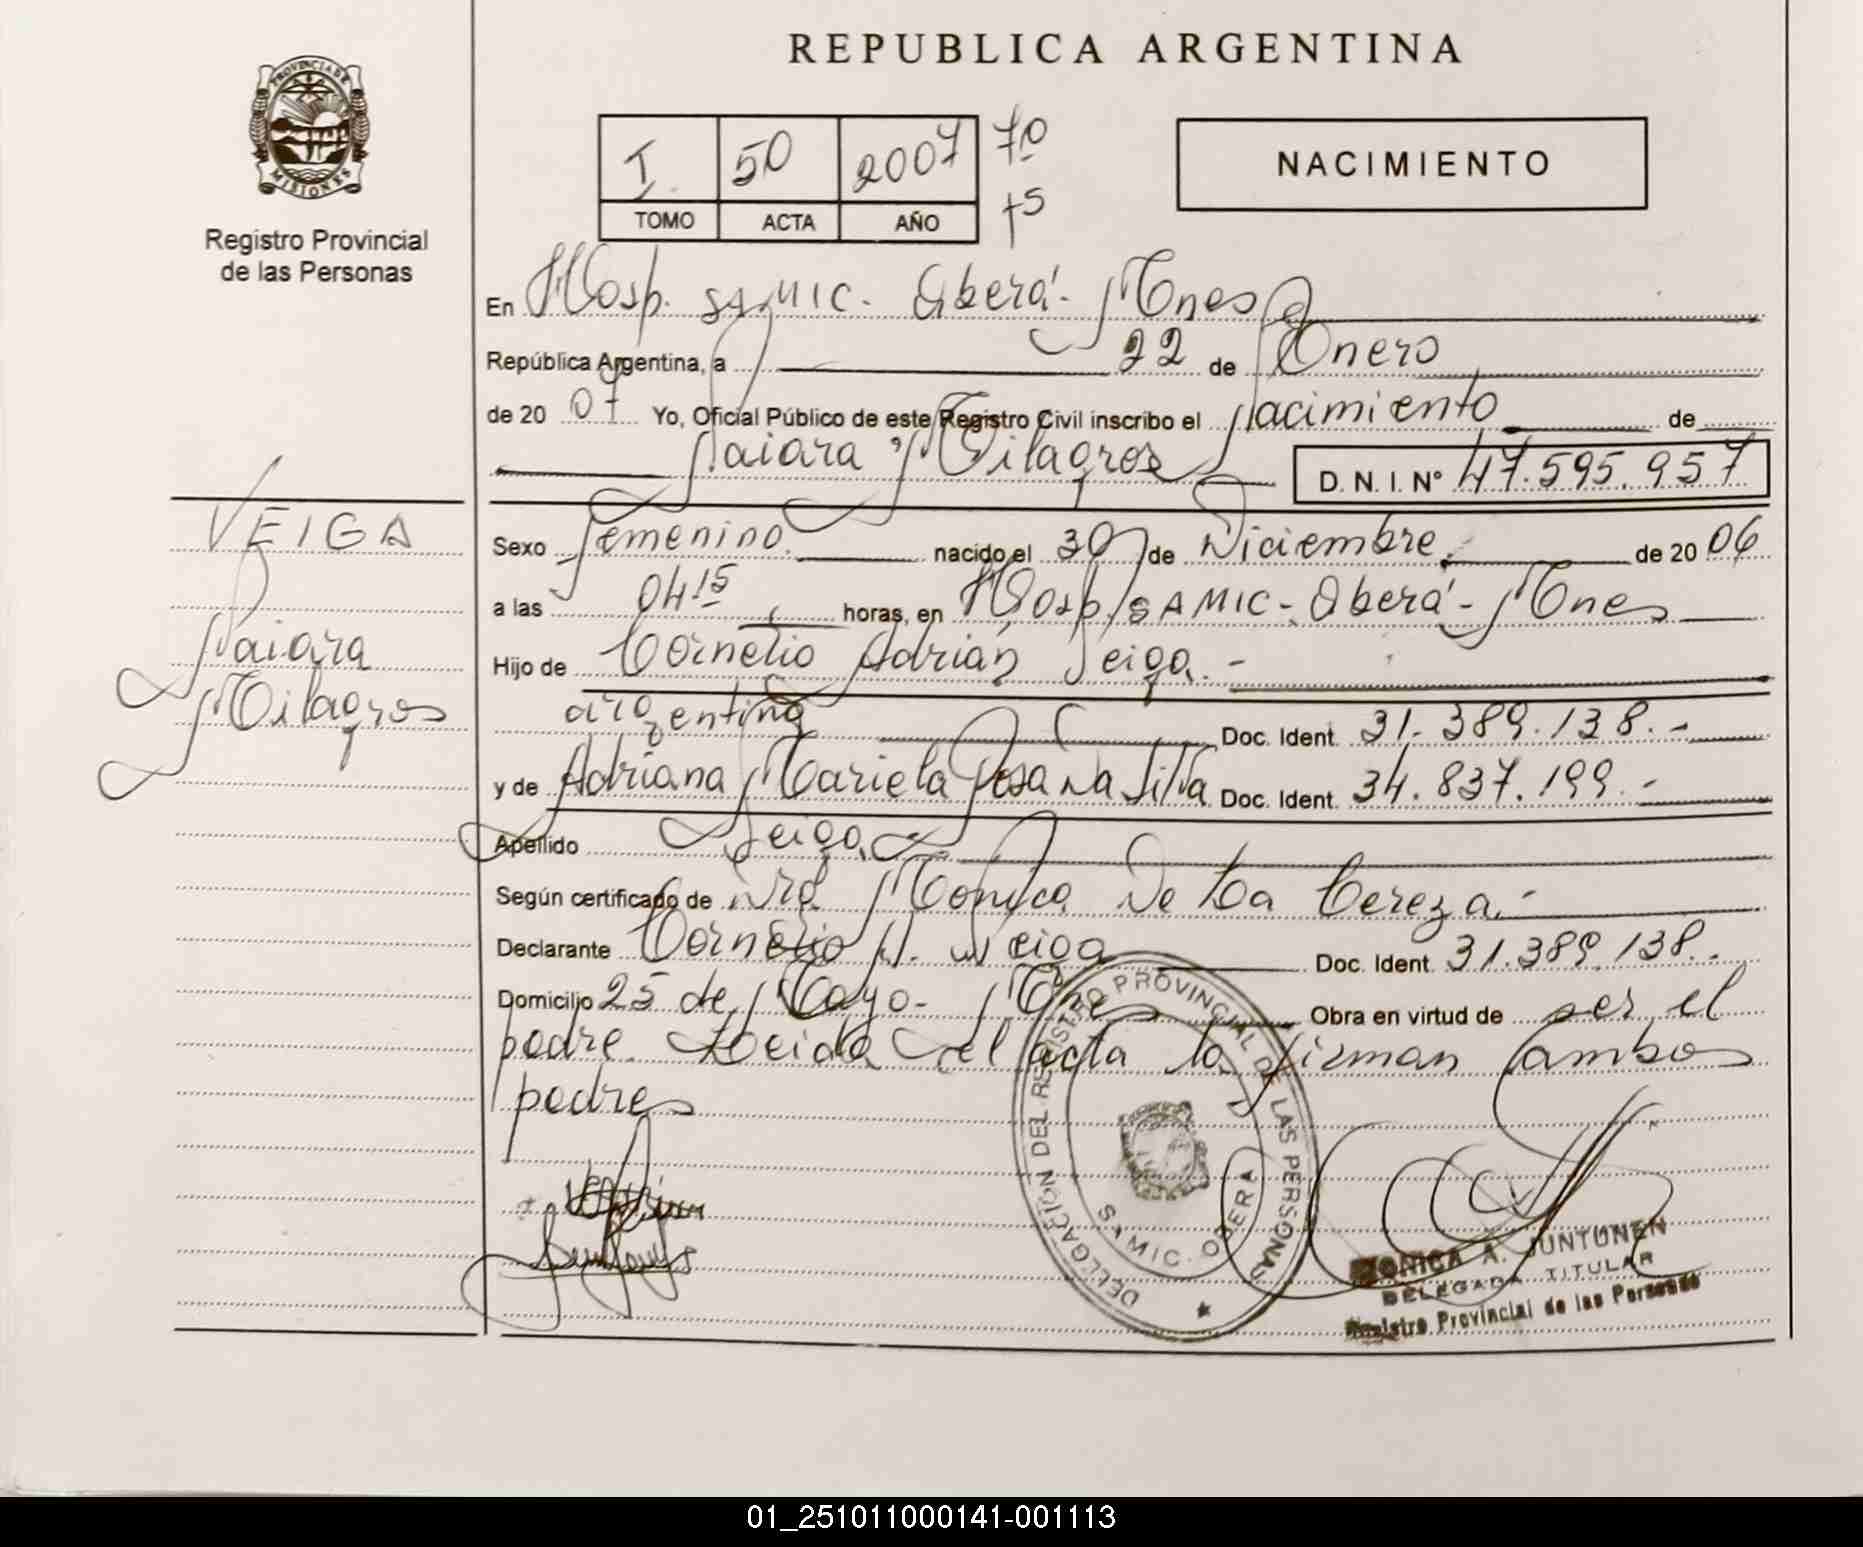 REPUBLICA ARGENTINA
PROVINCIA DE MISIONES
Registro Provincial
de las Personas
I 50 2007 70
TOMO ACTA AÑO 75
NACIMIENTO
En Hosp. SAMIC. Oberá - Mnes
República Argentina, a 22 de Enero
de 20 07 Yo, Oficial Público de este Registro Civil inscribo el Nacimiento de
Naiara Milagros D. N. I. Nº 47.595.957
VEIGA
Naiara
Milagros
Sexo femenino. nacido el 30 de Diciembre. de 20 06
a las 04 15 horas, en Hosp. SAMIC - Oberá - Mnes
Hijo de Cornelio Adrián Veiga. -
argentino Doc. Ident. 31.389.138.-
y de Adriana Mariela Da Silva Doc. Ident. 34.837.199.-
Apellido Veiga
Según certificado de Dra. Mónica De La Cereza.-
Declarante Cornelio A. Veiga Doc. Ident. 31.389.138.-
Domicilio 25 de Mayo - Mnes Obra en virtud de ser el
padre. Leida el acta la firman ambos
padres
DELEGACIÓN DEL REGISTRO PROVINCIAL DE LAS PERSONAS
SAMIC. OBERA
MONICA A. JUNTUNEN
DELEGADA TITULAR
Registro Provincial de las Personas
01_251011000141-001113